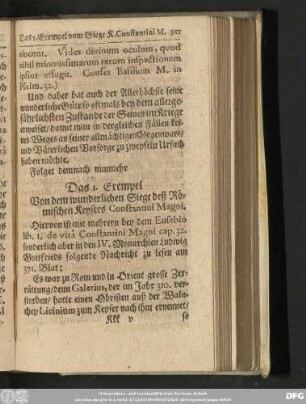 Das 1. Exempel vom Siege K. Constantini M. 911
socent. Vides divinum oculum, quod
nihil minutissimarum rerum inspectionem
ipsius effugit. Confer Basilium M. in
Psalm. 32.)
Und daher hat auch der Allerhöchste seine
wunderliche Güte so oftmals bey dem allerge-
fährlichsten Zustande der Seinen im Kriege
erweiset/ damit man in dergleichen Fällen kei-
nes Weges an seiner allmächtigen Gegenwart/
und Väterlichen Vorsorge zu zweifeln Ursach
haben möchte.
Folget demnach nunmehr
Das 1. Exempel
Von dem wunderlichen Siege deß Rö-
mischen Keysers Constantini Magni.
Hiervon ist mit mehrern bey dem Eusebio
lib. 1. de vitâ Constantini Magni cap. 32.
sonderlich aber in den IV. Monarchien Ludwig
Gottfrieds folgende Nachricht zu lesen am
371. Blat:
Es war zu Rom und in Orient grosse Zer-
rüttung/ denn Galerius, der im Jahr 310. ver-
storben/ hatte einen Obristen auß der Wala-
chey Licinium zum Keyser nach ihm ernennet/
Kkk v so